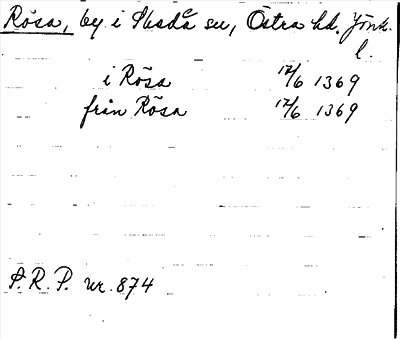 Rösa, by i Skede sn, Östra hd. Jönk.
l.
i Rösa 17/6 1369
från Rösa 17/6 1369
S.R.P. nr. 874